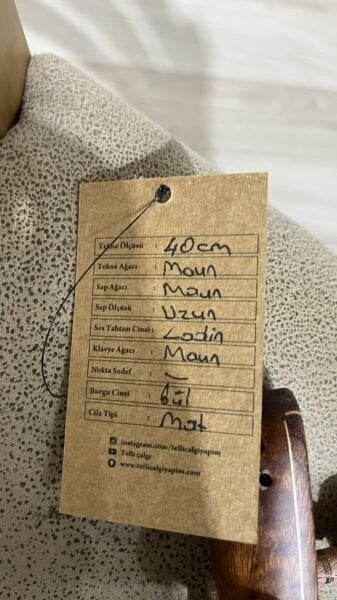 Tekne Ölçüsü : 40cm
Tekne Ağacı : Maun
Sap Ağacı : Maun
Sap Ölçüsü : Uzun
Ses Tahtası Cinsi : Ladin
Klavye Ağacı : Maun
Nokta Sedef : –
Burgu Cinsi : Gül
Cila Tipi : Mat
instagram.com/tellicalgiyapim
Telli çalgı
www.tellicalgiyapim.com